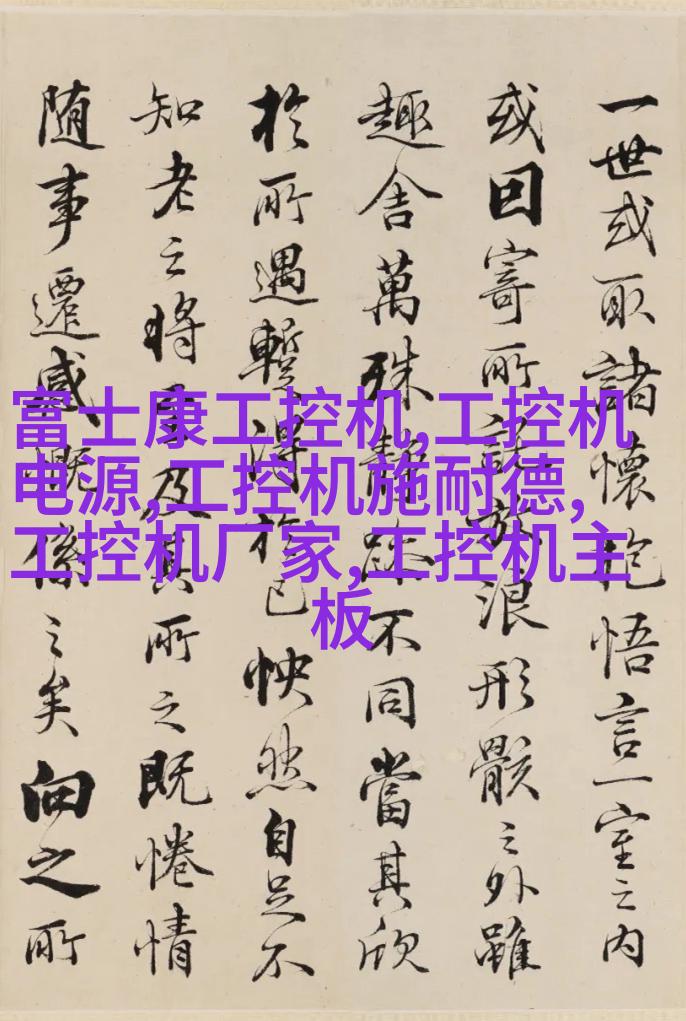 一世或取諸懷抱悟言一室之内
或因寄所託放浪形骸之外雖
趣舍萬殊静躁不同當其欣
於所遇暫得於己怏然自足不
知老之將至及其所之既惓情
随事遷感慨係之矣向之所
富士康工控机,工控机
电源,工控机施耐德,
工控机厂家,工控机主
板